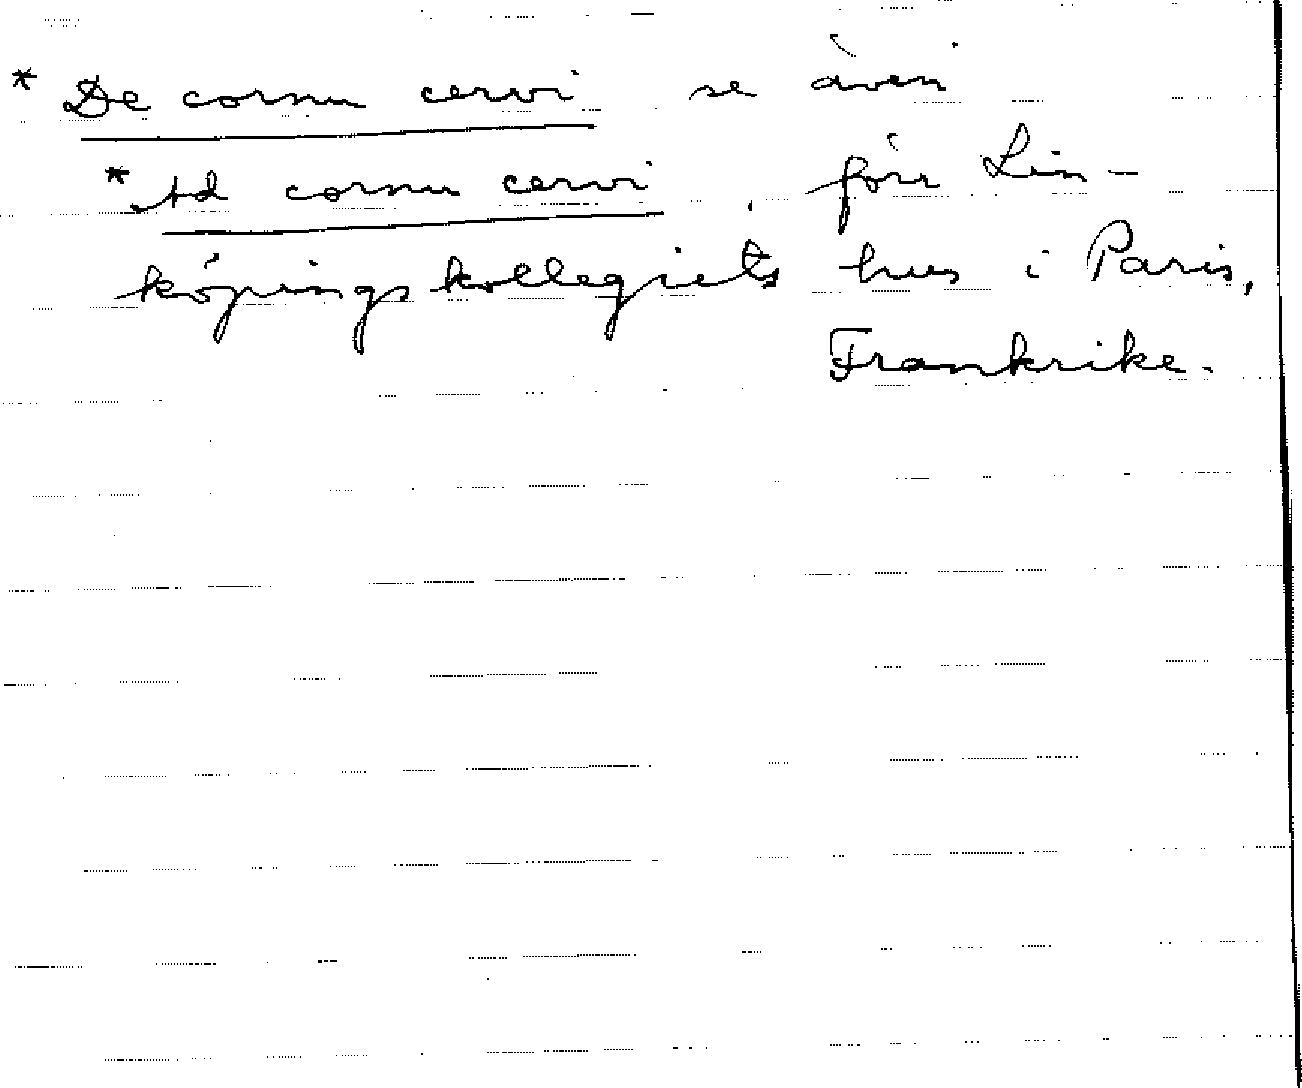 * De cornu cervi se även
* Ad cornu cervi, förr Lin-
köpingskollegiets hus i Paris,
Frankrike.